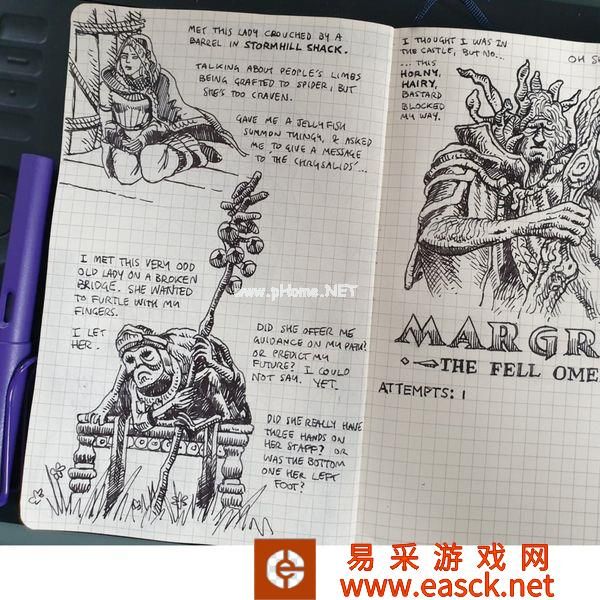 MET THIS LADY CROUCHED BY A
BARREL IN STORMHILL SHACK.
TALKING ABOUT PEOPLE'S LIMBS
BEING GRAFTED TO SPIDER, BUT
SHE'S TOO CRAVEN.
GAVE ME A JELLYFISH
SUMMON THINGY, & ASKED
ME TO GIVE A MESSAGE
TO 'THE CHRYSALIDS'...
I MET THIS VERY ODD
OLD LADY ON A BROKEN
BRIDGE. SHE WANTED
TO FURTLE WITH MY
FINGERS.
I LET
HER.
DID SHE OFFER ME
GUIDANCE ON MY PATH?
OR PREDICT MY
FUTURE? I COULD
NOT SAY. YET.
DID SHE REALLY HAVE
THREE HANDS ON
HER STAFF? OR
WAS THE BOTTOM
ONE HER LEFT
FOOT?
I THOUGHT I WAS IN
THE CASTLE, BUT NO...
... THIS
HORNY,
HAIRY,
BASTARD
BLOCKED
MY WAY.
OH S
MARGR
THE FELL OME
ATTEMPTS: 1
www.pHome.NET
易采游戏网
www.easck.net